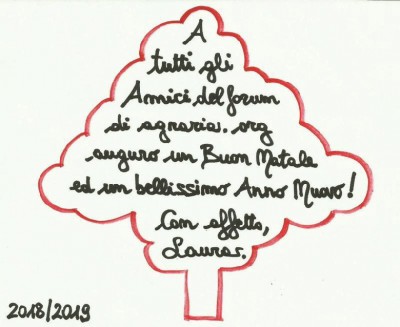 A
tutti gli
Amici del forum
di agraria.org
auguro un Buon Natale
ed un bellissimo Anno Nuovo!
Con affetto,
Laura.
2018/2019